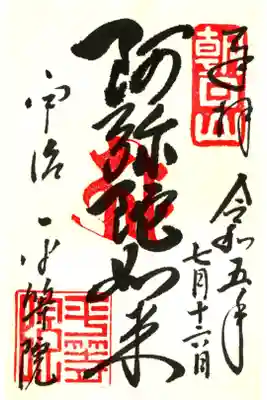 奉拝
朝日山
令和五年
七月十六日
阿弥陀如来
宇治 平等院